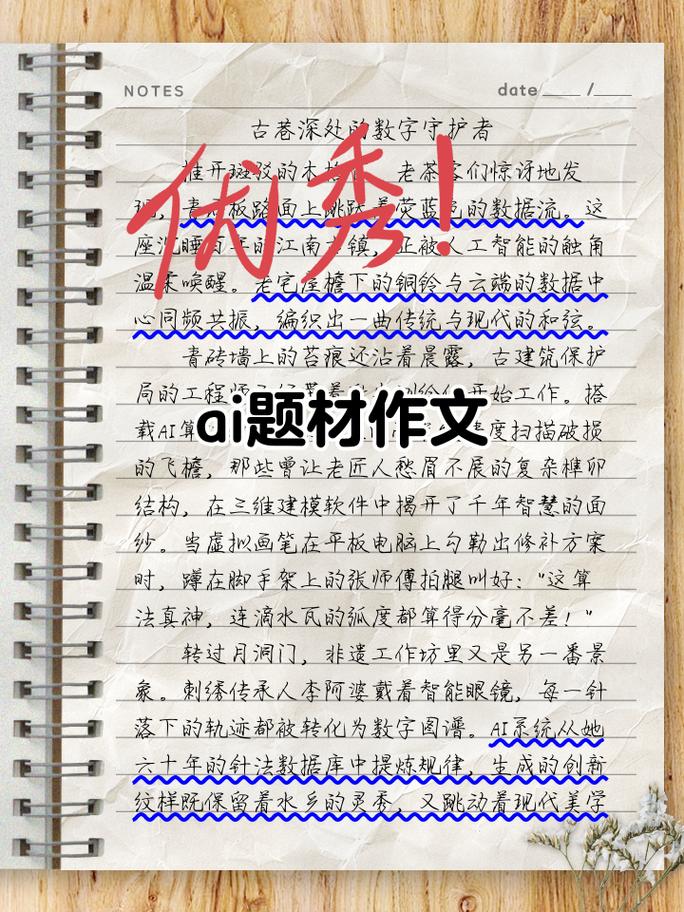 NOTES
date ____ /____
古巷深处的数字守护者
推开斑驳的木 老茶客们惊讶地发
现，青石板路面上跳跃着荧蓝色的数据流。这
座沉睡百年的江南古镇，正被人工智能的触角
温柔唤醒。老宅屋檐下的铜铃与云端的数据中
心同频共振，编织出一曲传统与现代的和弦。
青砖墙上的苔痕还沾着晨露，古建筑保护
局的工程师 开始工作。搭
载AI算 度扫描破损
的飞檐，那些曾让老匠人愁眉不展的复杂榫卯
结构，在三维建模软件中揭开了千年智慧的面
纱。当虚拟画笔在平板电脑上勾勒出修补方案
时，蹲在脚手架上的张师傅拍腿叫好："这算
法真神，连滴水瓦的弧度都算得分毫不差！"
转过月洞门，非遗工作坊里又是另一番景
象。刺绣传承人李阿婆戴着智能眼镜，每一针
落下的轨迹都被转化为数字图谱。AI系统从她
六十年的针法数据库中提炼规律，生成的创新
纹样既保留着水乡的灵秀，又跳动着现代美学
优秀！
ai题材作文